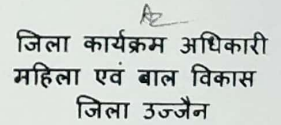 जिला कार्यक्रम अधिकारी
महिला एवं बाल विकास
जिला उज्जैन